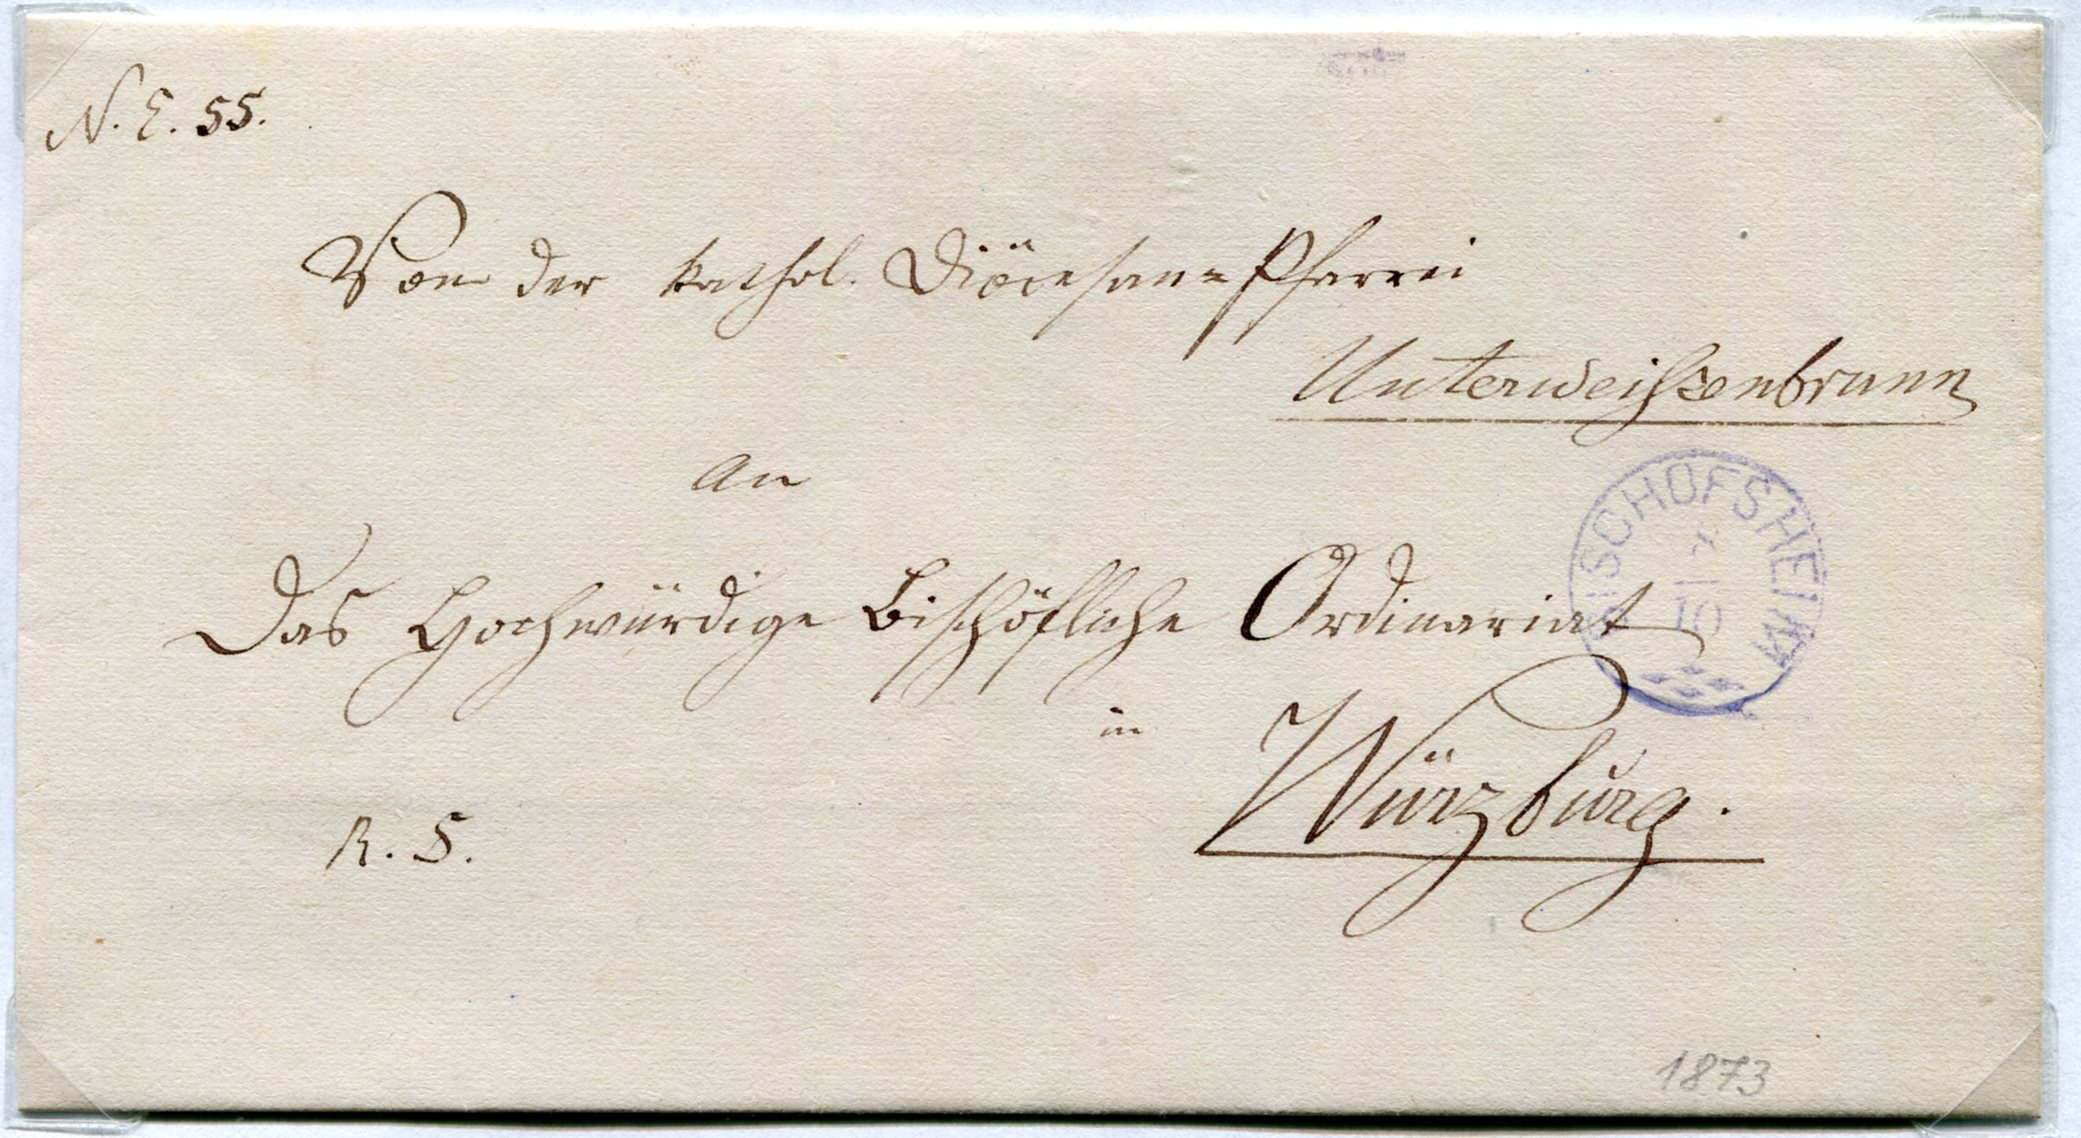 N. E. 55.
Von der kathol. Diöcesan=Pfarrei
Unterweißenbrunn
An
Das Hochwürdige Bischöfliche Ordinariat
in
Würzburg.
R. S.
BISCHOFSHEIM
10
1873